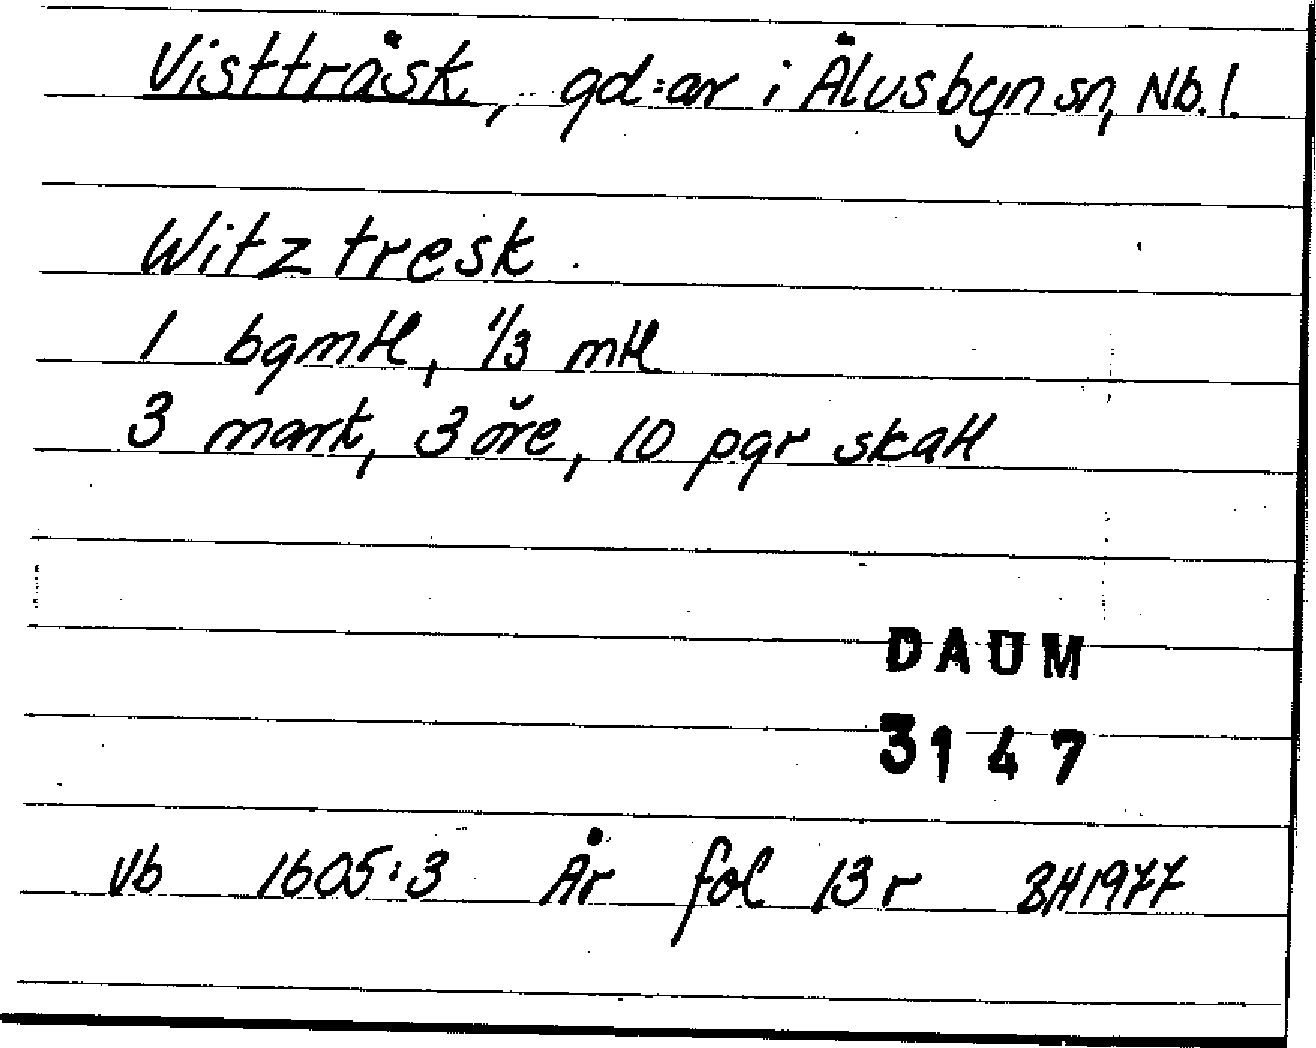 Vistträsk, gd:ar i Älvsbyn sn, Nb. l.
Witz tresk
1 bgmtl, 1/3 mtl
3 mark, 3 öre, 10 pgr skatt
DAUM
3147
Vb 1605:3 År fol 13 r BH1977